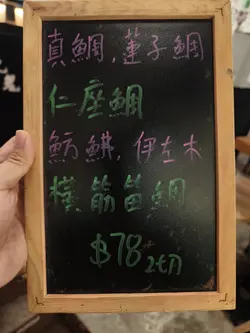 真鯛,蓮子鯛
仁座鯛
魴鮄,伊左木
横筋笛鯛
$78 2切